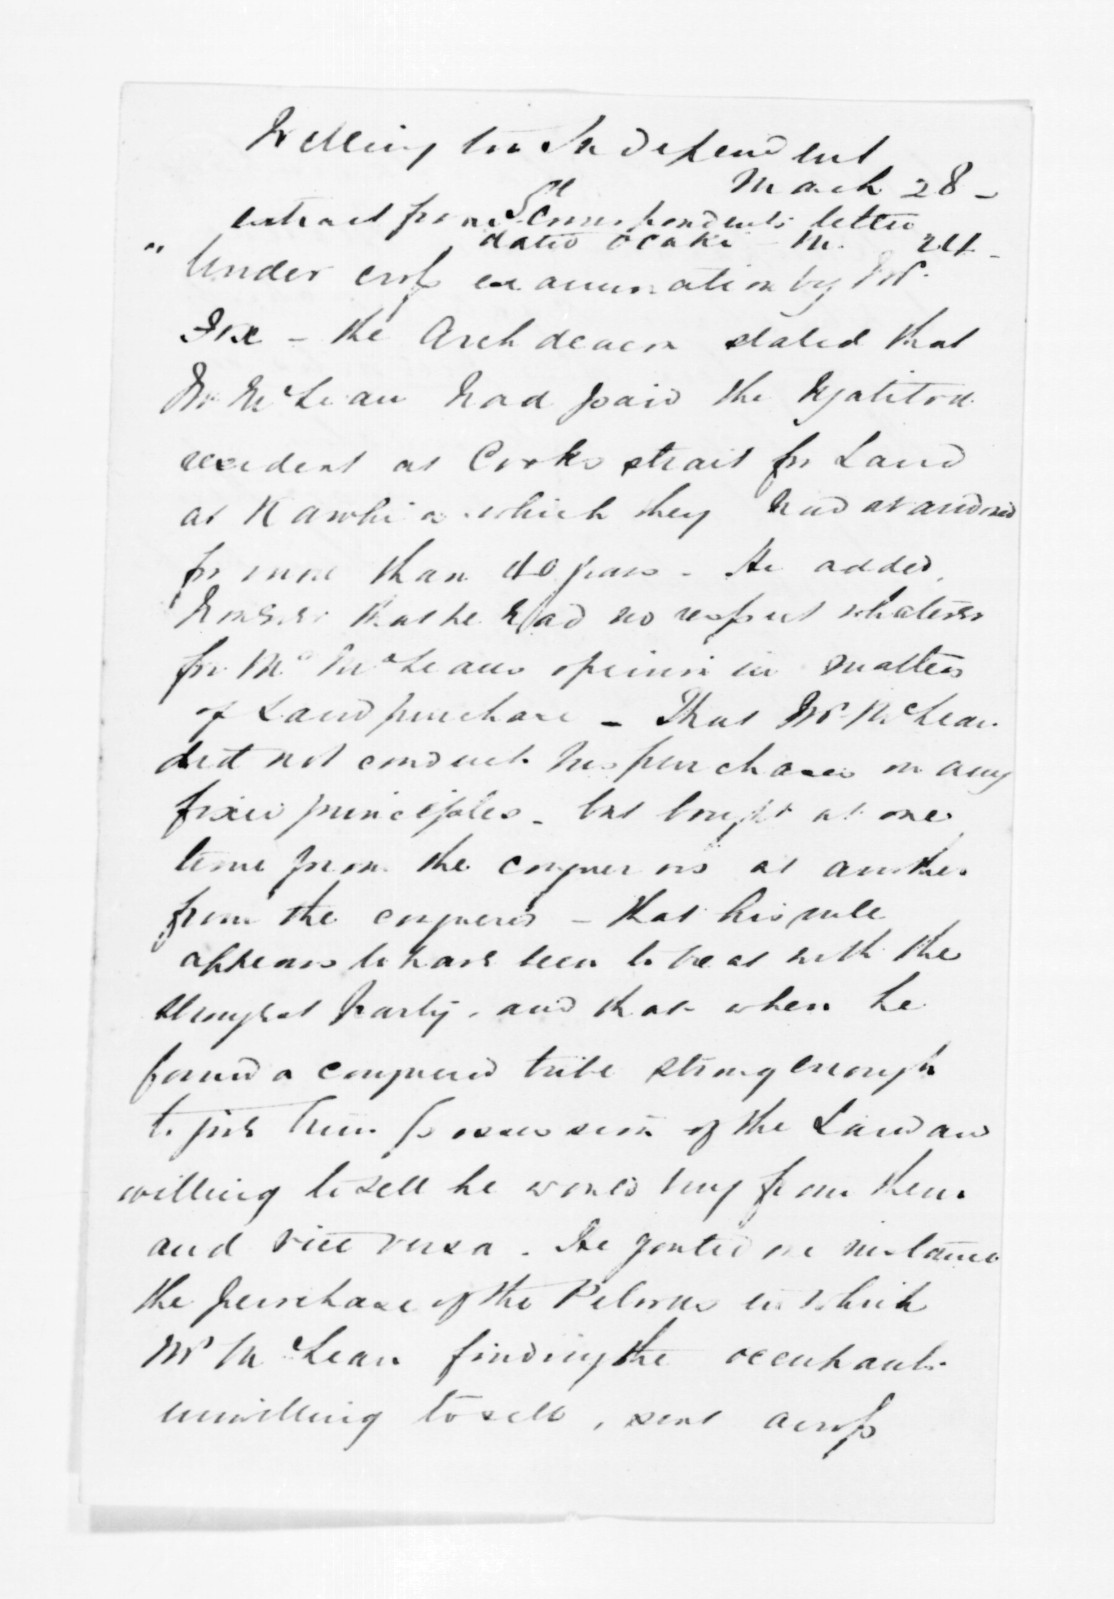 Wellington Independent
March 28 -
extract from Correspondents letter
dated Otaki - M. 24 -
"Under cross examination by Mr
Fox - the Archdeacon stated that
Mr McLean had paid the Ngatitoa
resident at Cooks strait for Land
at Kawhia which they had abandoned
for more than 40 years - He added,
however that he had no respect whatever
for Mr McLeans opinion in matters
of Land purchase - That Mr McLean
did not conduct his purchases on any
fixed principles - but bought at one
time from the conquerors at another
from the conquered - that his rule
appears to have been to treat with the
strongest party, and that when he
found a conquered tribe strong enough
to give him possession of the Land and
willing to sell he would buy from them
and vice versa. He quoted one instance
the purchase of the Pelorus in which
Mr McLean finding the occupants
unwilling to sell, sent across